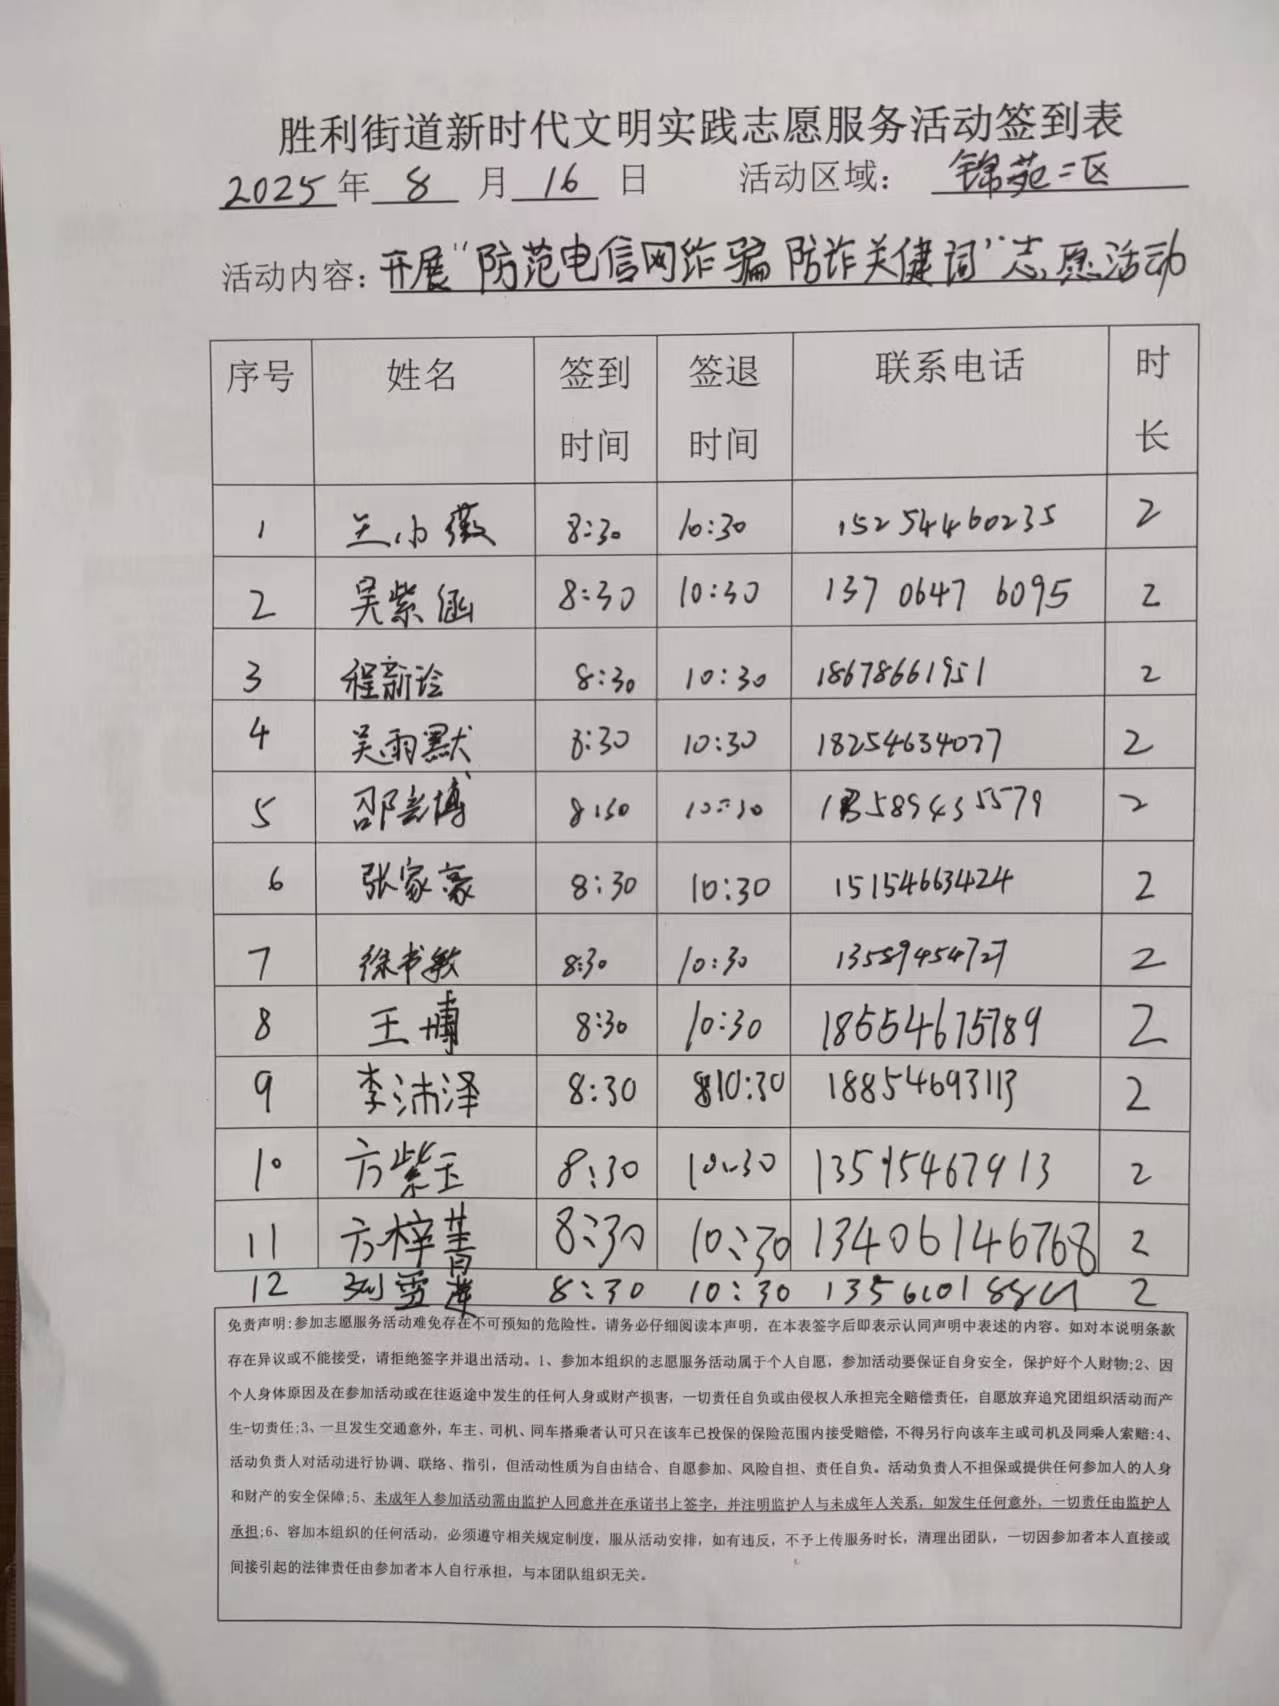 胜利街道新时代文明实践志愿服务活动签到表
2025年 8 月 16 日 活动区域: 锦苑二区
活动内容: 开展“防范电信网诈骗 防诈关键词”志愿活动
序号 姓名 签到时间 签退时间 联系电话 时长
1 王小薇 8:30 10:30 15254460235 2
2 吴紫涵 8:30 10:30 137 0647 6095 2
3 程新 8:30 10:30 18678661951 2
4 吴雨默 8:30 10:30 18254634077 2
5 邵 博 8:30 10:30 13589435579 2
6 张家豪 8:30 10:30 15154663424 2
7 徐书敏 8:30 10:30 13589454727 2
8 王博 8:30 10:30 18554675789 2
9 李沛泽 8:30 10:30 18854693113 2
10 方紫玉 8:30 10:30 13595467913 2
11 方梓菁 8:30 10:30 13406146768 2
12 刘雪莲 8:30 10:30 2
免责声明:参加志愿服务活动难免存在不可预知的危险性。请务必仔细阅读本声明，在本表签字后即表示认同声明中表述的内容。如对本说明条款
存在异议或不能接受，请拒绝签字并退出活动。1、参加本组织的志愿服务活动属于个人自愿，参加活动要保证自身安全，保护好个人财物;2、因
个人身体原因及在参加活动或在往返途中发生的任何人身或财产损害，一切责任自负或由侵权人承担完全赔偿责任，自愿放弃追究团组织活动而产
生一切责任;3、一旦发生交通意外，车主、司机、同车搭乘者认可只在该车已投保的保险范围内接受赔偿，不得另行向该车主或司机及同乘人索赔:4、
活动负责人对活动进行协调、联络、指引，但活动性质为自由结合、自愿参加、风险自担、责任自负。活动负责人不担保或提供任何参加人的人身
和财产的安全保障;5、未成年人参加活动需由监护人同意并在承诺书上签字，并注明监护人与未成年人关系，如发生任何意外，一切责任由监护人
承担;6、容加本组织的任何活动，必须遵守相关规定制度，服从活动安排，如有违反，不予上传服务时长，清理出团队，一切因参加者本人直接或
间接引起的法律责任由参加者本人自行承担，与本团队组织无关。